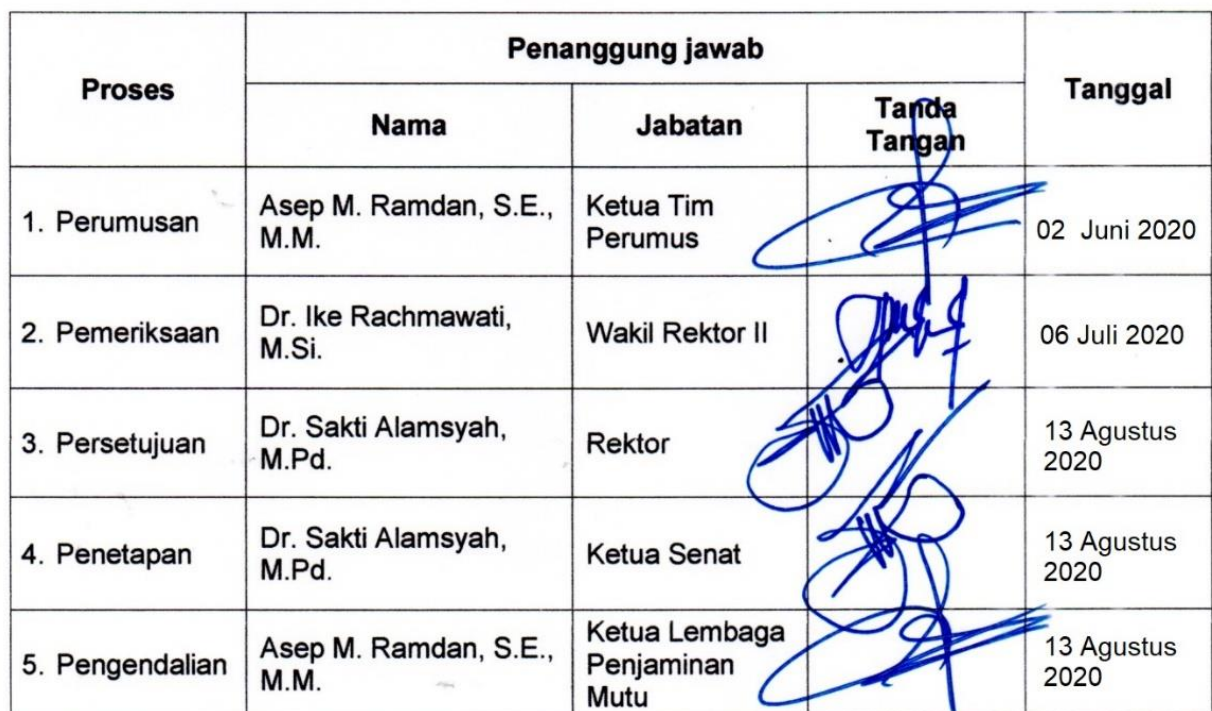 Proses
Penanggung jawab
Tanggal
Nama
Jabatan
Tanda
Tangan
1. Perumusan
Asep M. Ramdan, S.E.,
M.M.
Ketua Tim
Perumus
02 Juni 2020
2. Pemeriksaan
Dr. Ike Rachmawati,
M.Si.
Wakil Rektor II
06 Juli 2020
3. Persetujuan
Dr. Sakti Alamsyah,
M.Pd.
Rektor
13 Agustus
2020
4. Penetapan
Dr. Sakti Alamsyah,
M.Pd.
Ketua Senat
13 Agustus
2020
5. Pengendalian
Asep M. Ramdan, S.E.,
M.M.
Ketua Lembaga
Penjaminan
Mutu
13 Agustus
2020